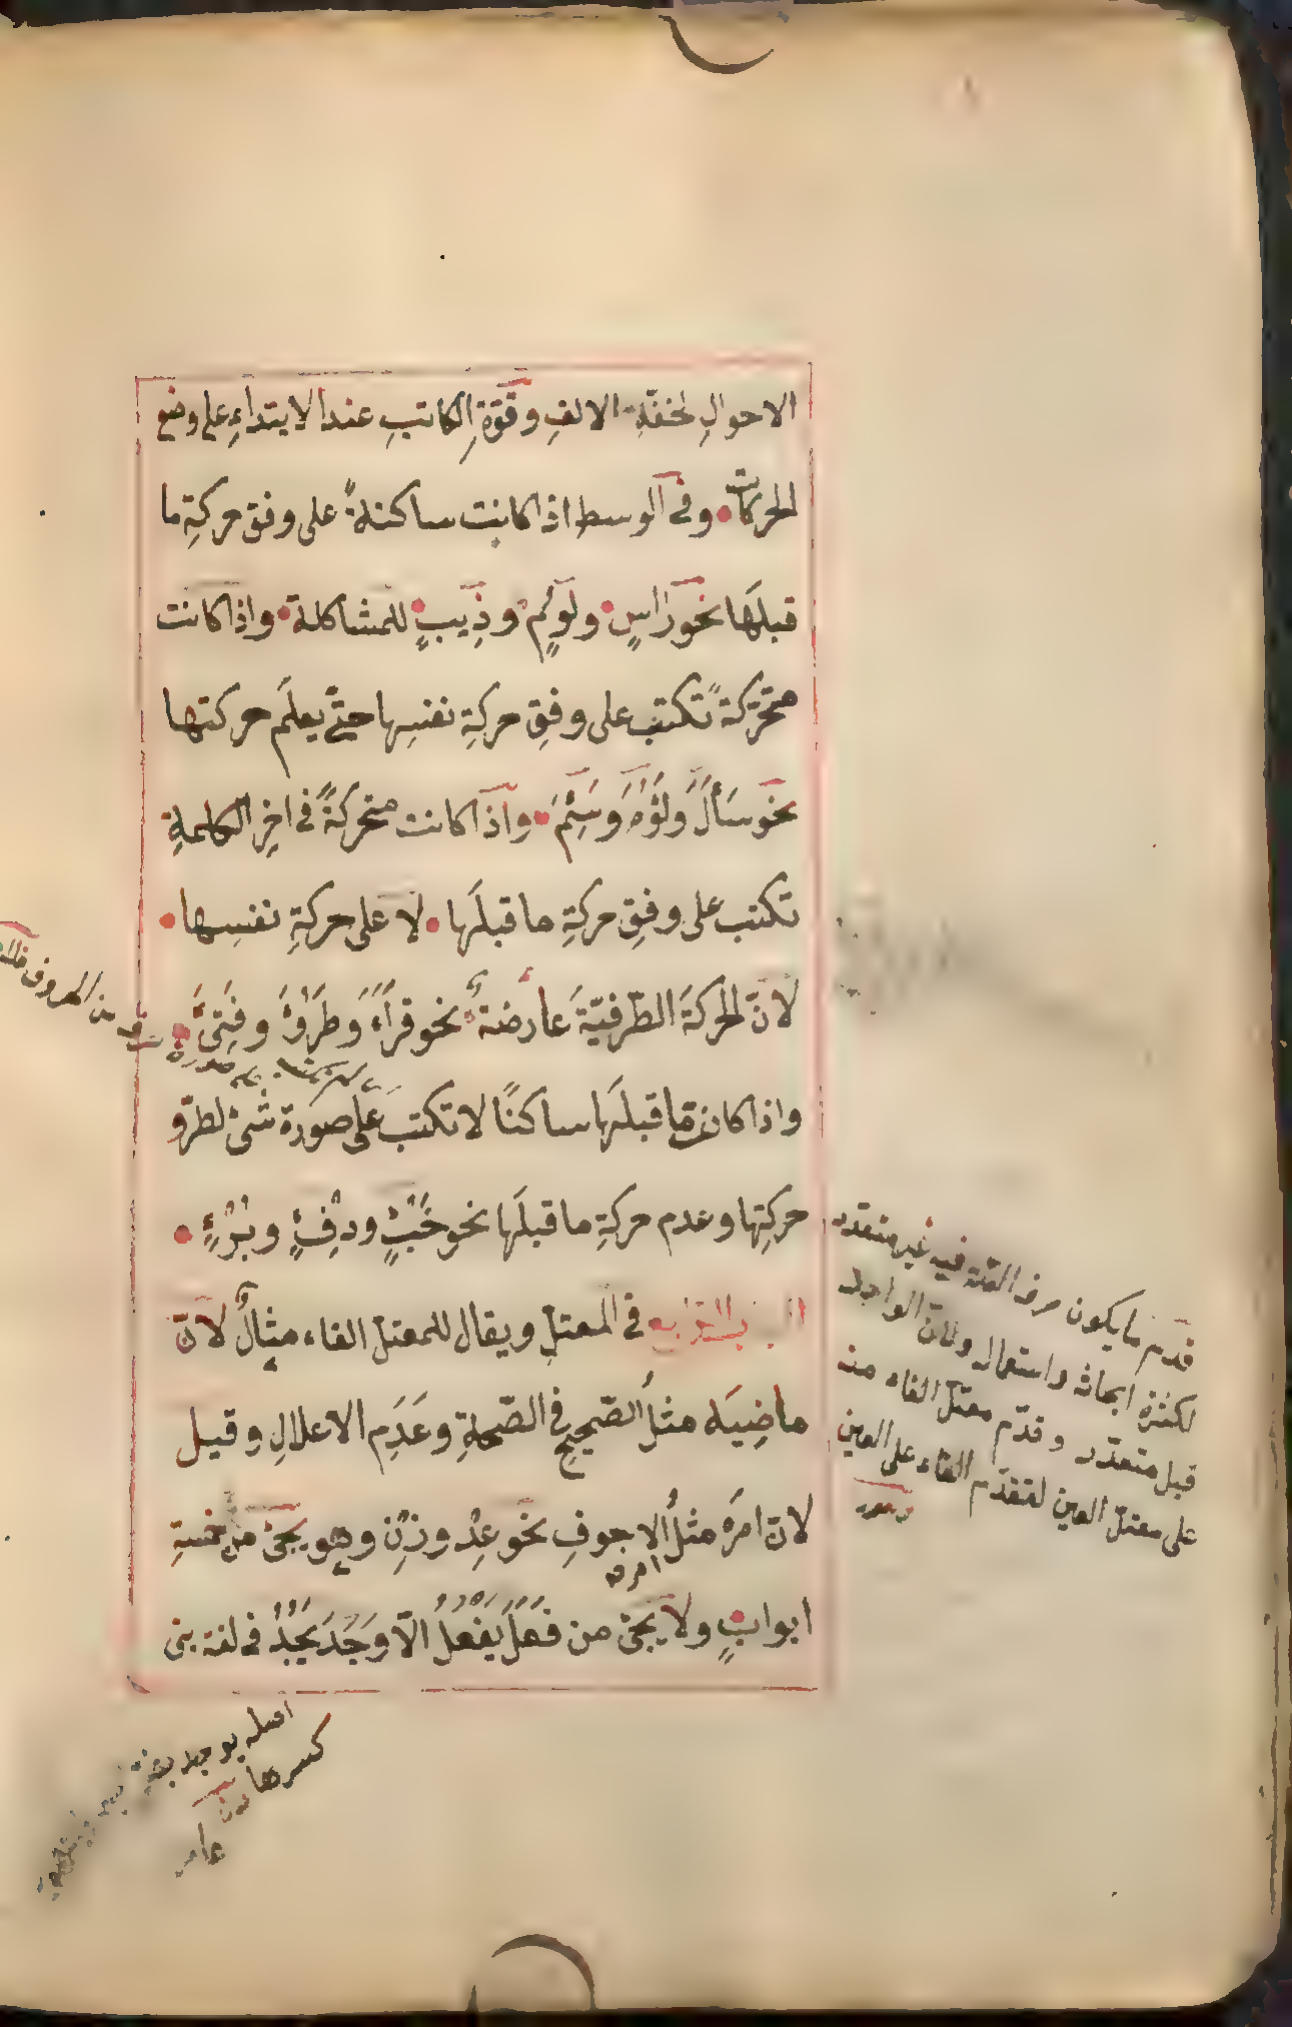 الاحوالِ لخفّةِ الالفِ وقوّةِ الكاتبِ عند الابتداءِ على وضع
الحركات وفى الوسط اذا كانت ساكنةً على وفق حركةِ ما
قبلَها نحو رَاسٍ ولَوُمٍ وذِيبٍ للمشاكلة واذا كانت
متحرّكةً تكتب على وفقِ حركةِ نفسِها حتّى يعلَم حركتها
نحو سَأَلَ ولَؤُمَ وسَئِمَ واذا كانت متحركةً فى اخِر الكلمةِ
تكتب على وفقِ حركةِ ما قبلَها لا على حركةِ نفسِها
لانّ الحركةَ الطّرفيّةَ عارضةٌ نحو قرَأَ وطَرُؤَ وفَتِئَ
واذا كان ما قبلَها ساكنًا لا تكتب على صورة شئ لطرّو
حركتِها وعدم حركةِ ما قبلَها نحو خَبْءٍ ودِفْءٍ وبُرْءٍ
الباب الرّابع فى المعتلِ ويقال للمعتل الفاء مثالٌ لانّ
ماضِيَه مثلُ الصّحيحِ فى الصّحةِ وعَدَمِ الاعلالِ وقيل
لانّ امرَه مثلُ الاجوفِ نحو عِدْ وزِنْ وهو يجئ من خمسةِ
امره
ابوابٍ ولا يجئ من فَعَلَ يَفْعُلُ الّا وَجَدَ يَجُدُ فى لغة بنى
عامر
قدم ما يكون حرف العلّة فيه غير متعدد
لكثرة ابحاثه واستعماله ولانّ الواحد
قبل متعدد وقدّم معتلّ الفاء منه
على معتلّ العين لتقدّم الفاء على العين
اصله يوجد
كسرها